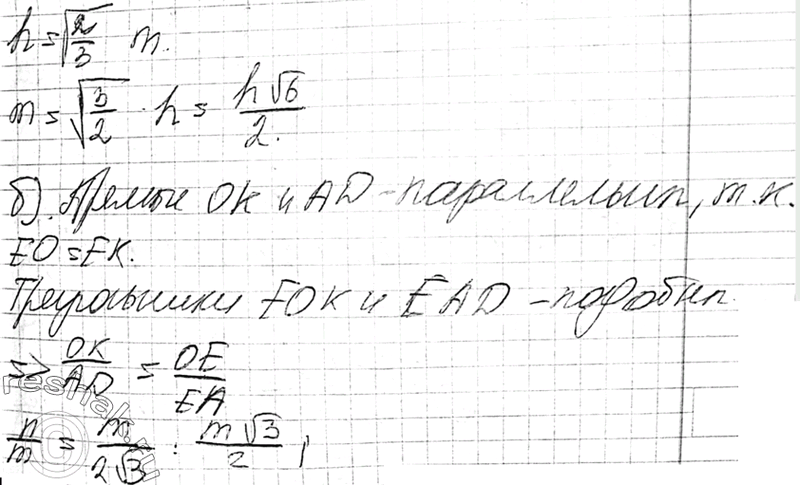 h = √(2/3) m.
m = √(3/2) · h = h√6/2.
б). Прямые OK и AD - параллельны, т.к.
EO = EK.
Треугольники EOK и EAD - подобны.
=> OK/AD = OE/EA
n/m = m/2√3 : m√3/2 ,
reshak.ru